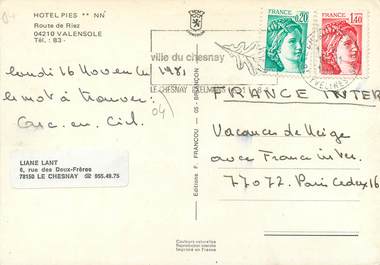 HOTEL PIES ** NN
Route de Riez
04210 VALENSOLE
Tél. : 83 -
FRANCE
0,20
FRANCE
1,40
ville du chesnay
LE CHESNAY
lundi 16 Novembre 1981
le mot à trouver:
Casc. en. Ciel.
04
FRANCE INTER
Vacances de Neige
avec France inter.
77072. Paris Cedex 16
LIANE LANT
6, rue des Deux-Frères
78150 LE CHESNAY ☎ 955.49.75
Editions F. FRANCOU - 05 - BRIANÇON
Couleurs naturelles
Reproduction interdite
Imprimé en France